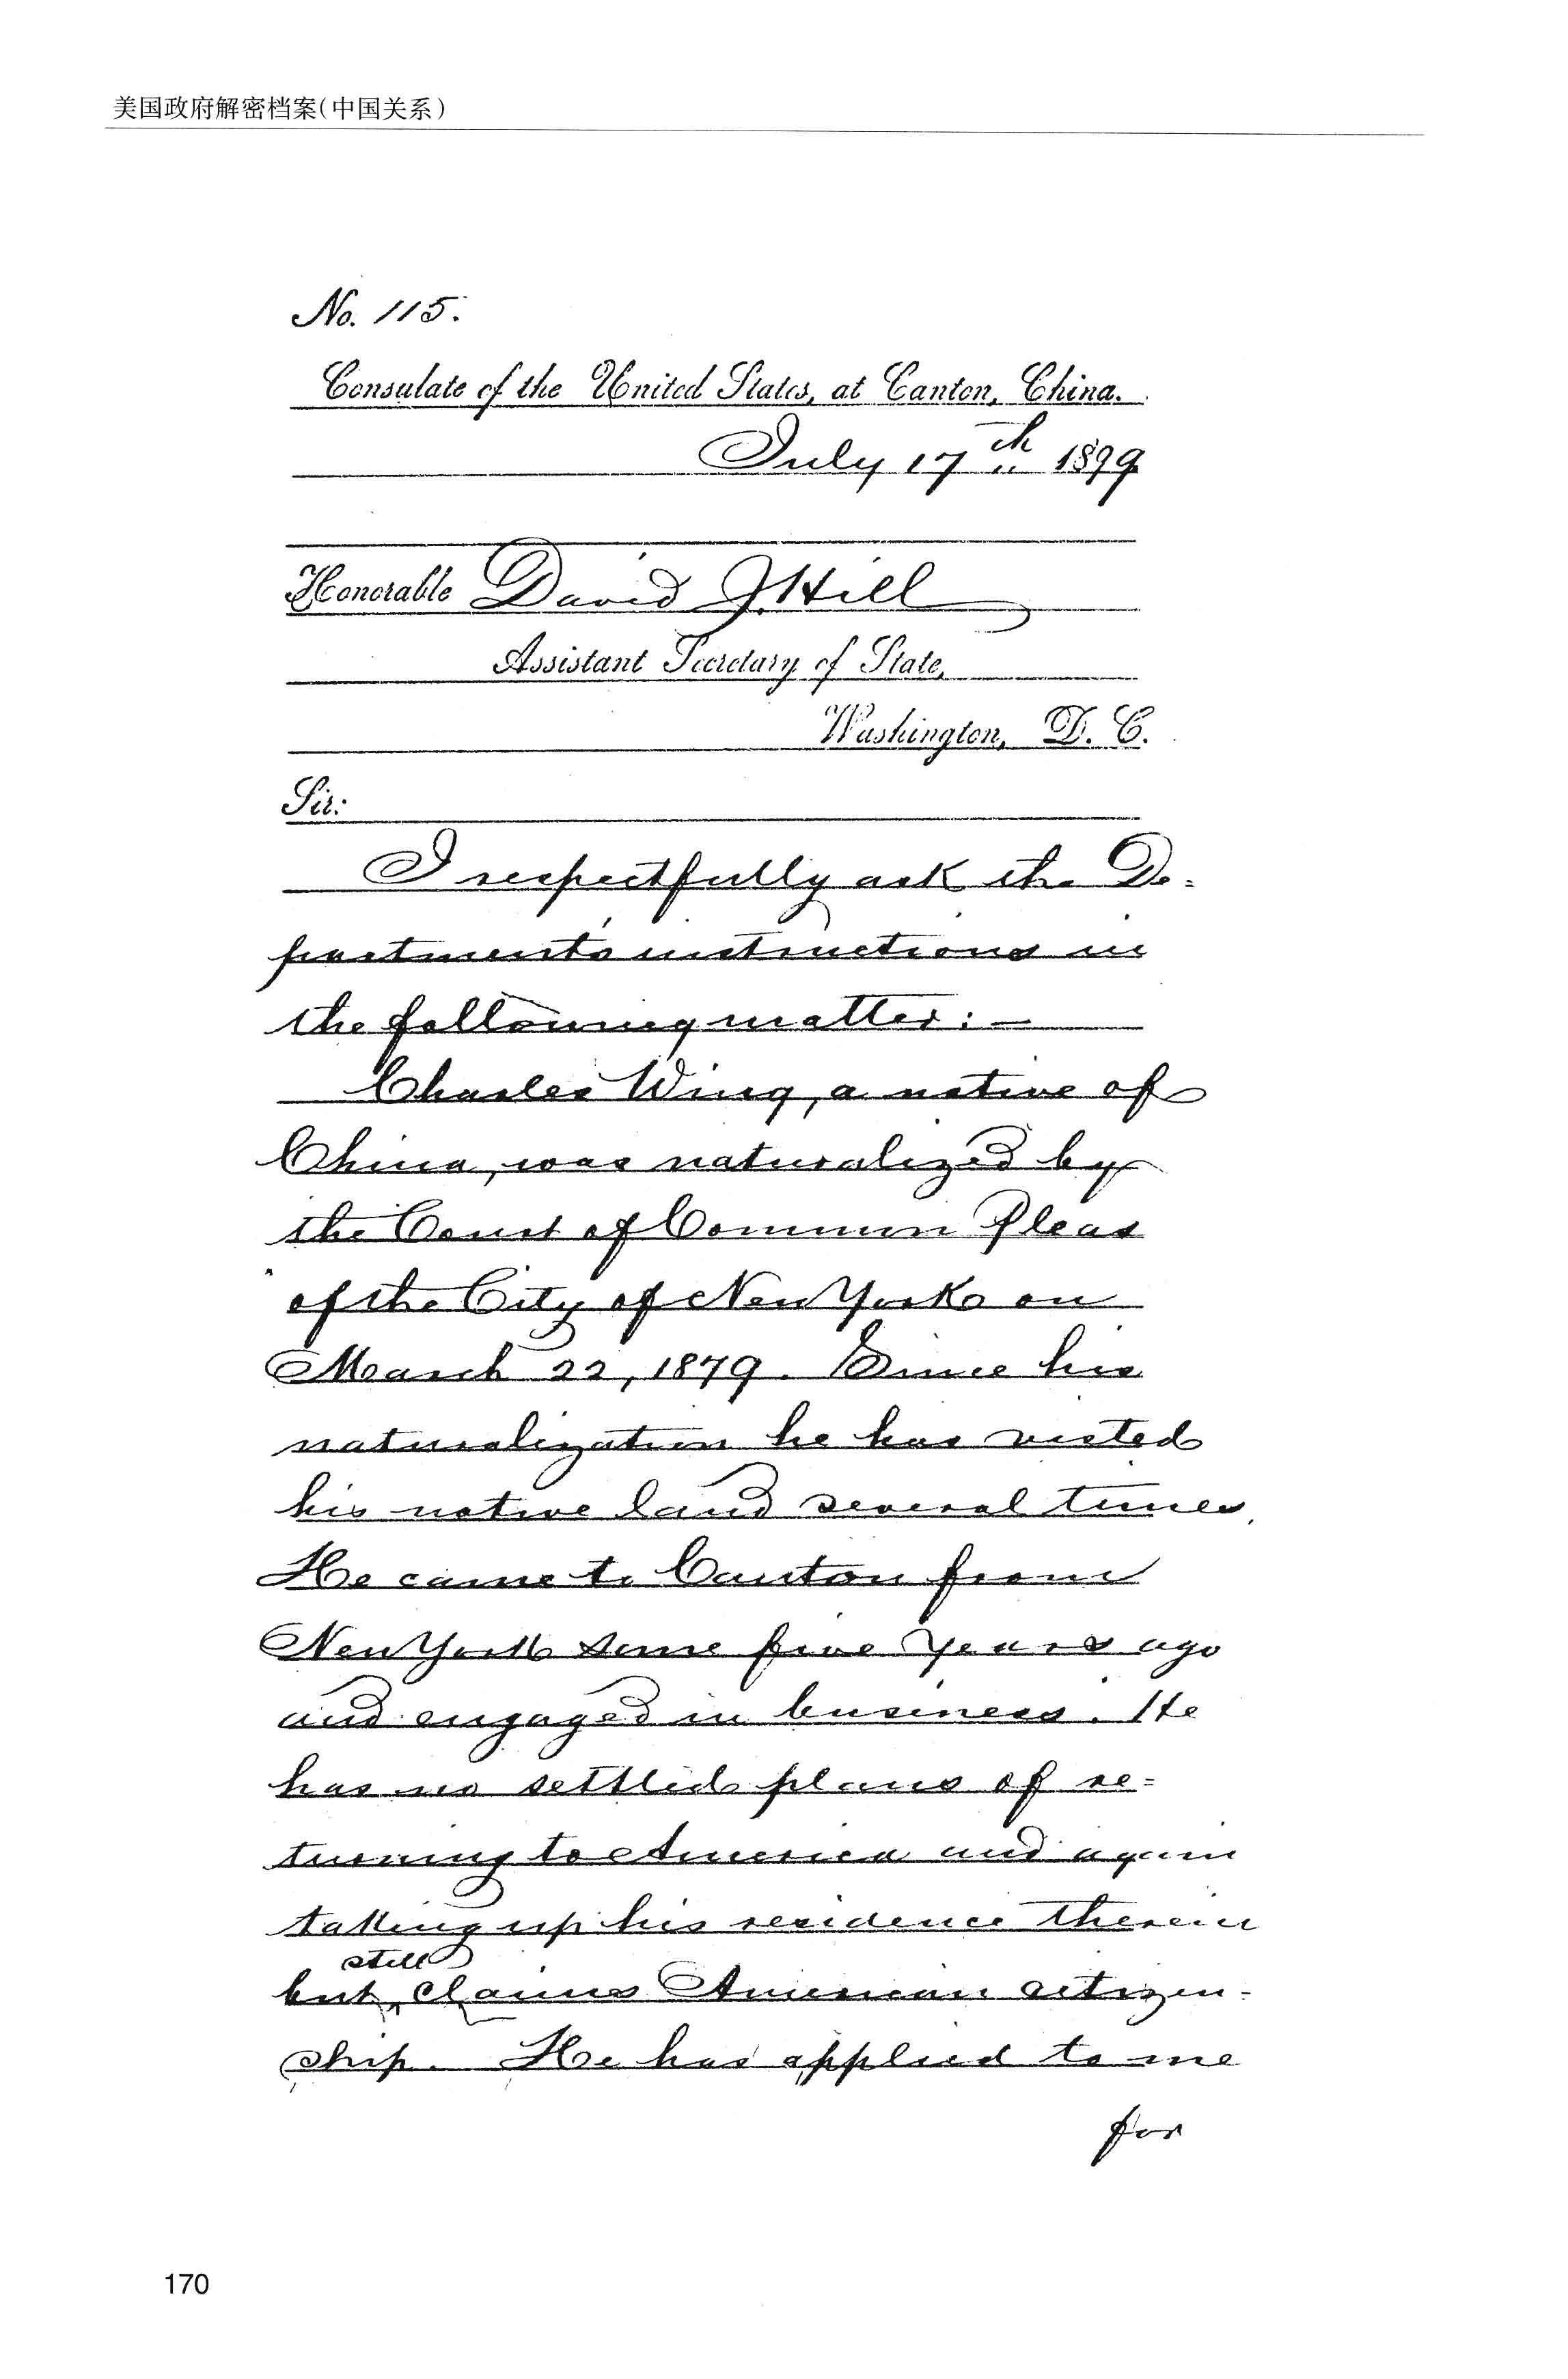 美国政府解密档案(中国关系)
No. 115.
Consulate of the United States, at Canton, China.
July 17th 1899
Honorable David J. Hill
Assistant Secretary of State,
Washington, D. C.
Sir:
I respectfully ask the De-
partment's instructions in
the following matter:—
Charles Wing, a native of
China, was naturalized by
the Court of Common Pleas
of the City of New York on
March 22, 1879. Since his
naturalization he has visted
his native land several times.
He came to Canton from
New York some five years ago
and engaged in business. He
has no settled plans of re-
turning to America and again
taking up his residence therein
still
but claims American citizen-
ship. He has applied to me
for
170